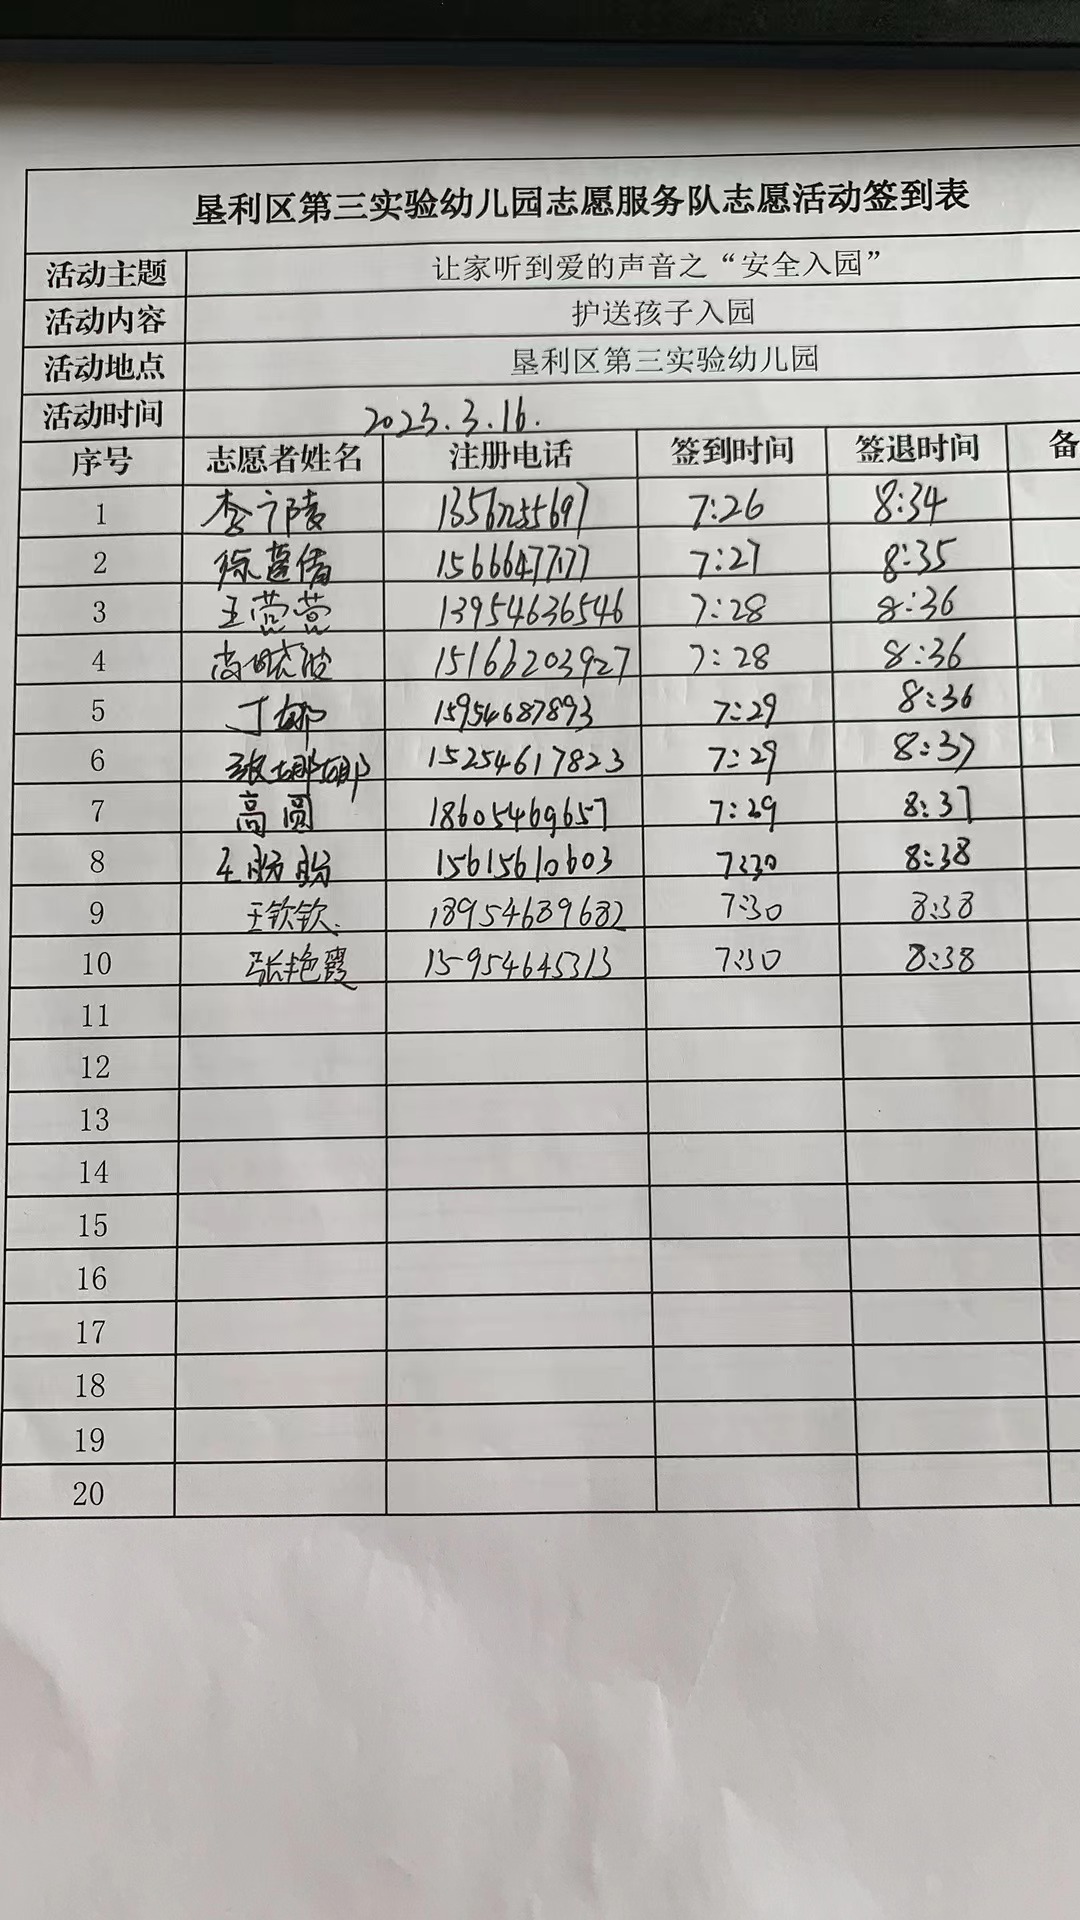 垦利区第三实验幼儿园志愿服务队志愿活动签到表
活动主题 让家听到爱的声音之“安全入园”
活动内容 护送孩子入园
活动地点 垦利区第三实验幼儿园
活动时间 2023.3.16.
序号 志愿者姓名 注册电话 签到时间 签退时间 备
1 李广陵 7:26 8:34
2 7:27 8:35
3 王营营 13954636546 7:28 8:36
4 尚晓波 15166203927 7:28 8:36
5 丁娜 15954687893 7:29 8:36
6 张娜娜 15254617823 7:29 8:37
7 高圆 18605469657 7:29 8:37
8 王盼盼 15615610603 7:30 8:38
9 王钦钦 18954689682 7:30 8:38
10 张艳霞 15954645313 7:30 8:38
11
12
13
14
15
16
17
18
19
20